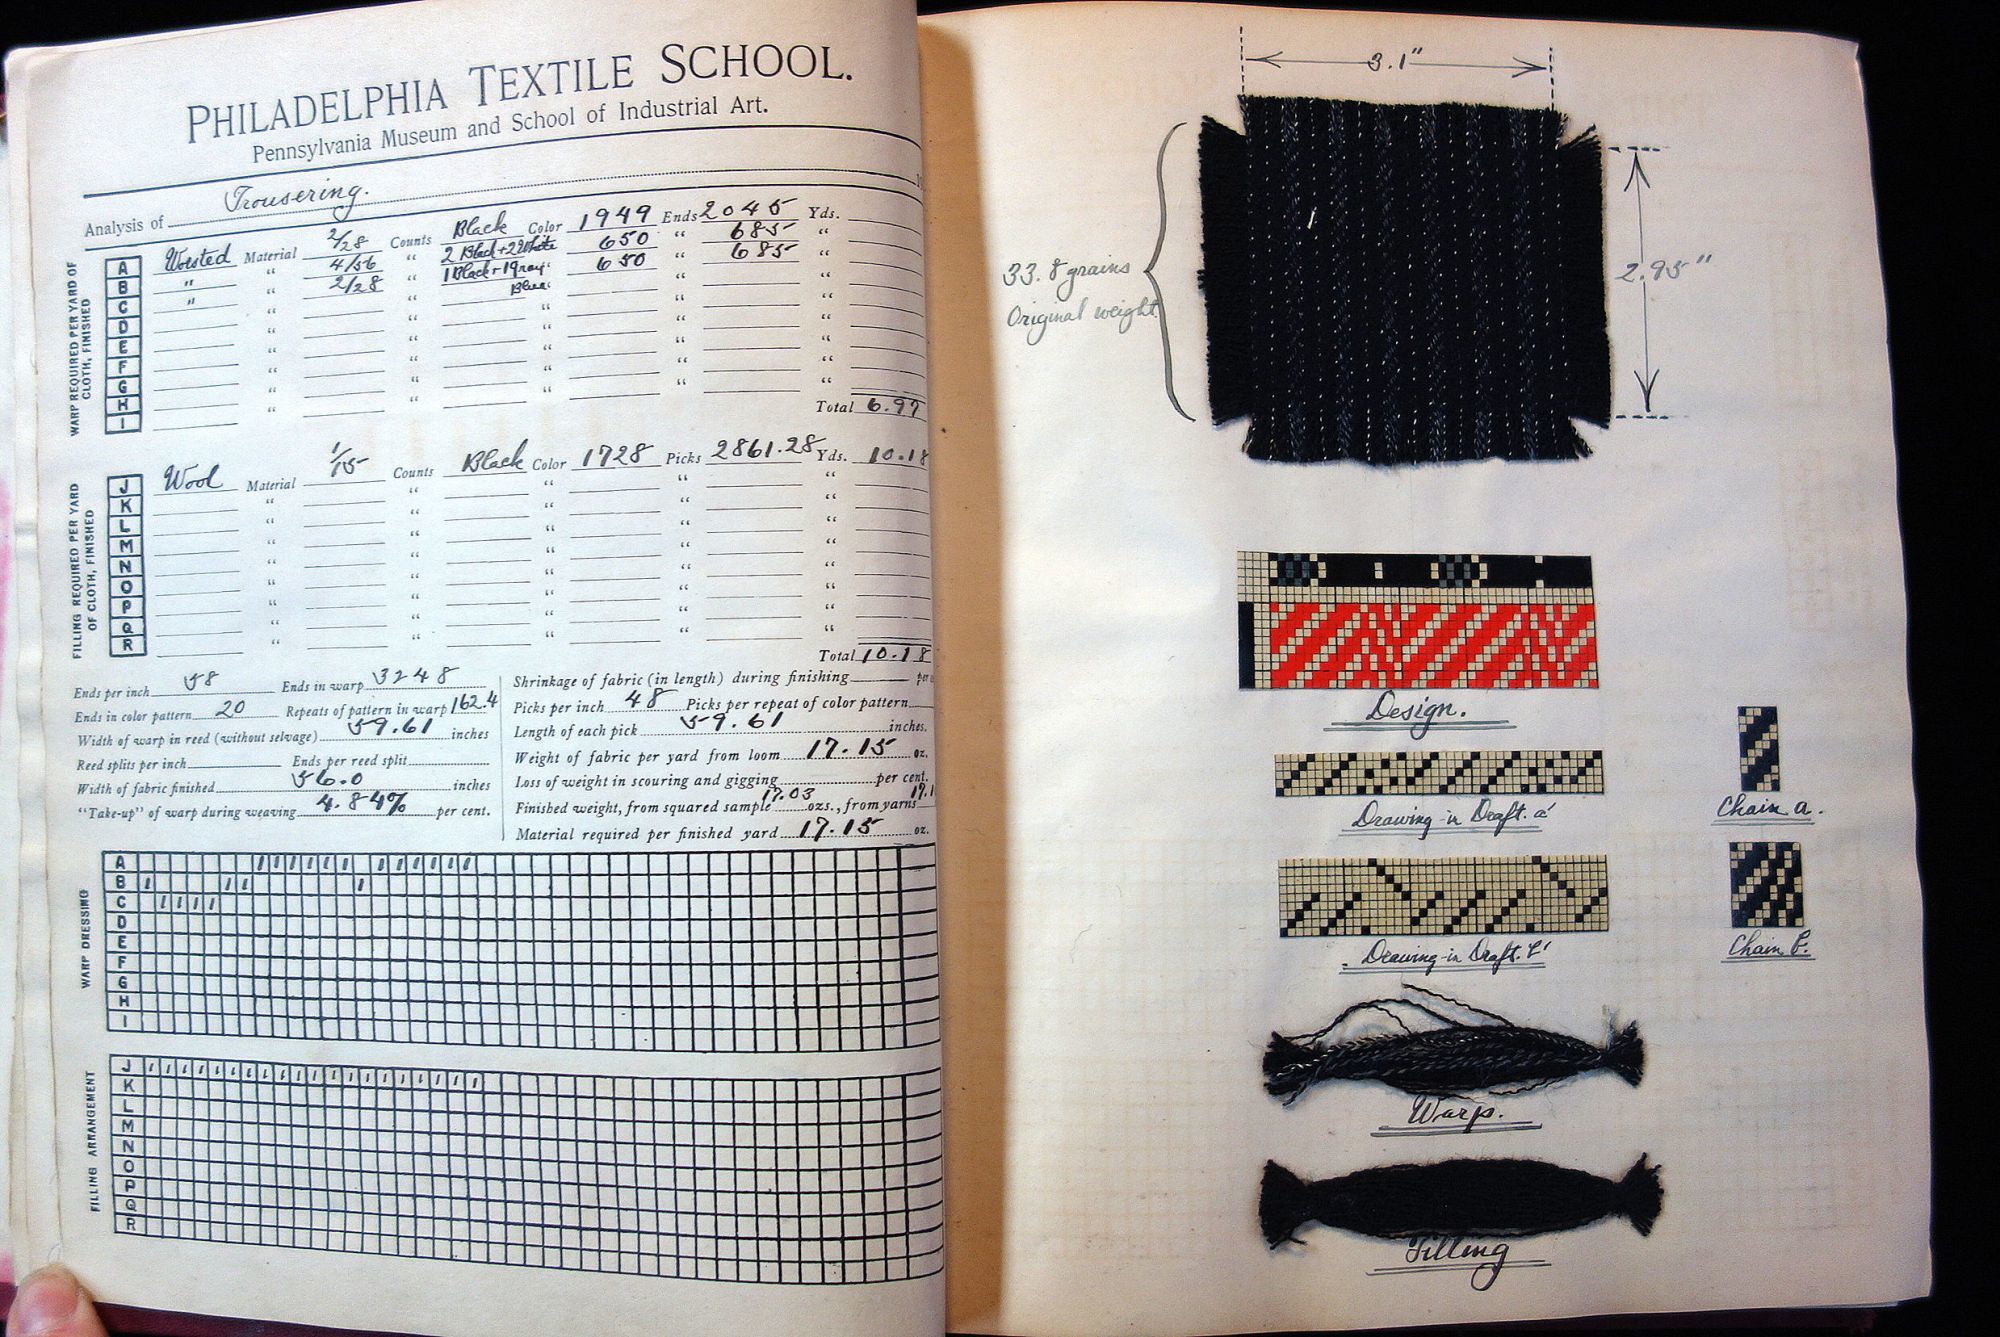 PHILADELPHIA TEXTILE SCHOOL.
Pennsylvania Museum and School of Industrial Art.
Analysis of Trousering.
WARP REQUIRED PER YARD OF CLOTH, FINISHED
A Worsted Material 2/28 Counts Black Color 1949 Ends 2045 Yds.
B " " 4/56 " 2 Black + 2 White " 650 " 685 "
C " " 2/28 " 1 Black + 1 Gray " 650 " 685 "
D " "
E " " " " "
F " " " " "
G " " " " "
H " " " " "
I " " " " "
Total 6.97
FILLING REQUIRED PER YARD OF CLOTH, FINISHED
J Wool Material 1/15 Counts Black Color 1728 Picks 2861.28 Yds. 10.18
K " " " " "
L " " " " "
M " " " " "
N " " " " "
O " " " " "
P " " " " "
Q " " " " "
R " " " " "
Total 10.18
Ends per inch 58 Ends in warp 3248
Ends in color pattern 20 Repeats of pattern in warp 162.4
Width of warp in reed (without selvage) 59.61 inches
Reed splits per inch Ends per reed split
Width of fabric finished 56.0 inches
"Take-up" of warp during weaving 4.84% per cent.
Shrinkage of fabric (in length) during finishing per
Picks per inch 48 Picks per repeat of color pattern
Length of each pick 59.61 inches.
Weight of fabric per yard from loom 17.15 oz.
Loss of weight in scouring and gigging per cent.
Finished weight, from squared sample 17.03 ozs., from yarns
Material required per finished yard 17.15 oz.
WARP DRESSING
A
B
C
D
E
F
G
H
I
FILLING ARRANGEMENT
J
K
L
M
N
O
P
Q
R
3.1"
33.8 grains
Original weight
2.95"
Design.
Drawing-in Draft. a'
Chain a.
Drawing-in Draft. b'
Chain b.
Warp.
Filling